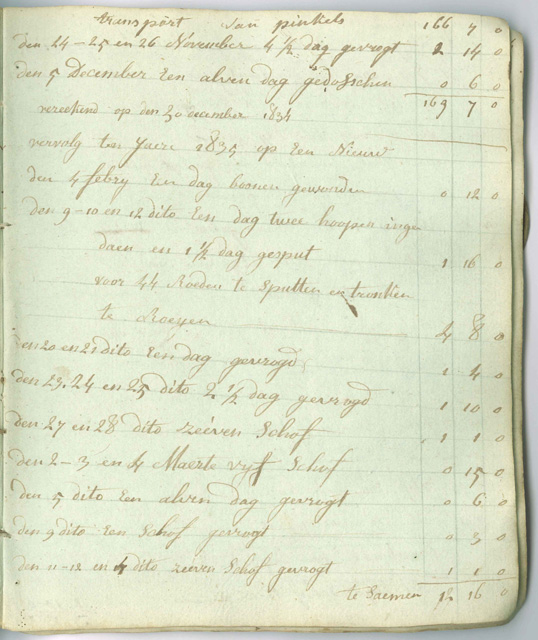 transport van pinkels 166 7 0
den 24-25 en 26 November 4 ½ dag gevrogt 2 14 0
den 5 December Een alven dag gedosschen 0 6 0
169 7 0
vereekend op den 30 december 1834
vervolg ten Jaere 1835 op Een Nieuw
den 4 febry Een dag boonen geworden 0 12 0
den 9-10 en 12 dito Een dag twee hoopen inge
daen en 1 ½ dag gesput 1 16 0
voor 44 Roeden te sputten en
te Roeyen 4 8 0
den 20 en 21 dito Een dag gevrogd 1 4 0
den 23. 24 en 25 dito 2 ½ dag gevrogd 1 10 0
den 27 en 28 dito zeeven Schof 1 1 0
den 2-3 en 4 Maerte vyf Schof 0 15 0
den 5 dito Een alven dag gevrogt 0 6 0
den 9 dito Een Schof gevrogt 0 3 0
den 11-12 en dito zeeven Schof gevrogt 1 1 0
te Saemen 12 16 0